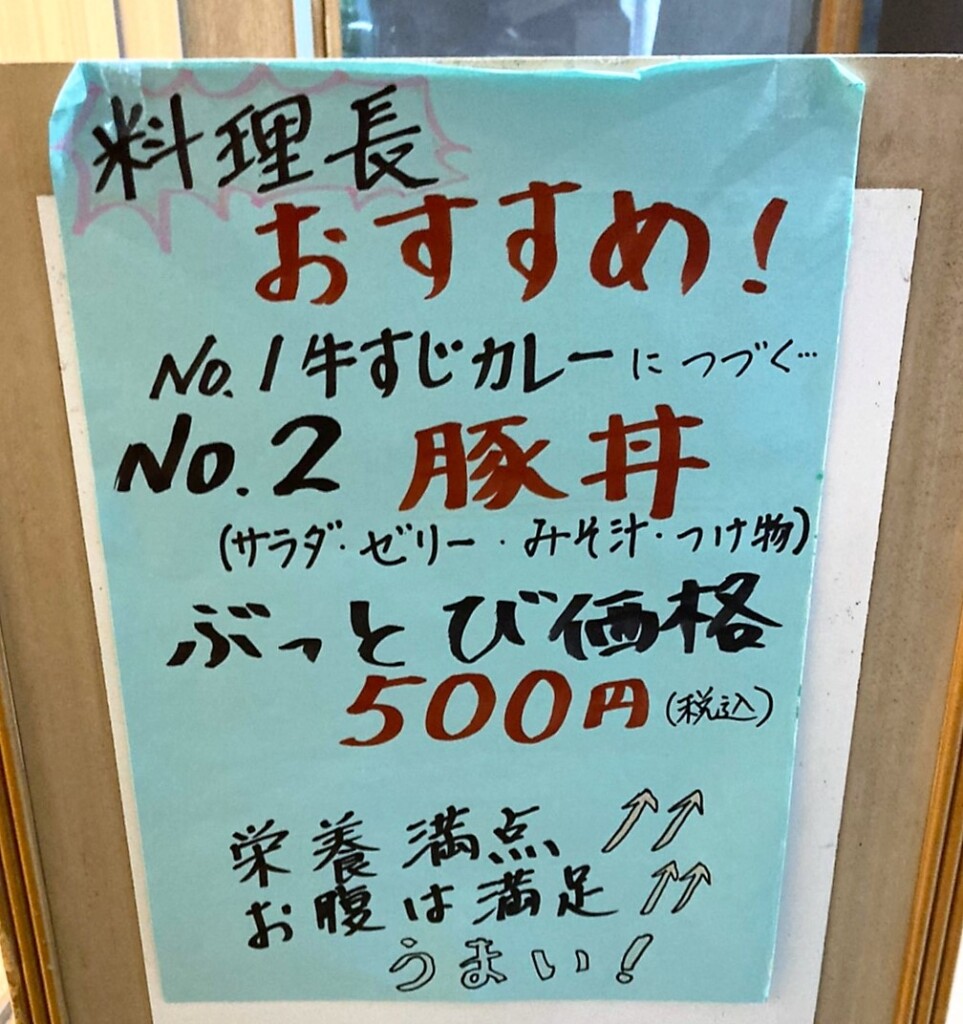 料理長
おすすめ!
No.1牛すじカレーにつづく…
No.2 豚丼
(サラダ・ゼリー・みそ汁・つけ物)
ぶっとび価格
500円(税込)
栄養満点
お腹は満足
うまい!